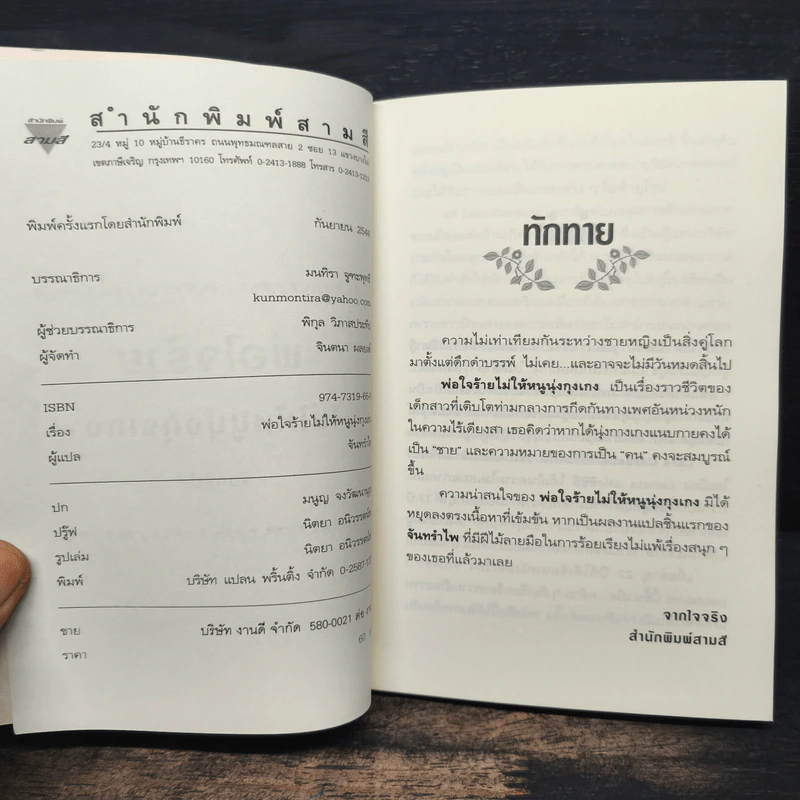 สำนักพิมพ์
สามสี
สำนักพิมพ์สามสี
23/4 หมู่ 10 หมู่บ้านธีราคร ถนนพุทธมณฑลสาย 2 ซอย 13
เขตภาษีเจริญ กรุงเทพฯ 10160 โทรศัพท์ 0-2413-1888 โทรสาร
พิมพ์ครั้งแรกโดยสำนักพิมพ์ กันยายน
บรรณาธิการ มนทิรา
kunmontira@yahoo.com
ผู้ช่วยบรรณาธิการ พิกุล
ผู้จัดทำ จินตนา
ISBN 974-7319-65-
เรื่อง พ่อใจร้ายไม่ให้หนูนุ่งกุงเกง
ผู้แปล จันทร์ำไพ
ปก มนูญ
ปรู๊ฟ นิตยา
รูปเล่ม นิตยา
พิมพ์ บริษัท แปลน พริ้นติ้ง จำกัด
ขาย บริษัท งานดี จำกัด 580-0021 ต่อ
ราคา 60
ทักทาย
ความไม่เท่าเทียมกันระหว่างชายหญิงเป็นสิ่งคู่โลก
มาตั้งแต่ดึกดำบรรพ์ ไม่เคย...และอาจจะไม่มีวันหมดสิ้นไป
พ่อใจร้ายไม่ให้หนูนุ่งกุงเกง เป็นเรื่องราวชีวิตของ
เด็กสาวที่เติบโตท่ามกลางการกีดกันทางเพศอันหน่วงหนัก
ในความไร้เดียงสา เธอคิดว่าหากได้นุ่งกางเกงแนบกายคงได้
เป็น "ชาย" และความหมายของการเป็น "คน" คงจะสมบูรณ์
ขึ้น
ความน่าสนใจของ พ่อใจร้ายไม่ให้หนูนุ่งกุงเกง มิได้
หยุดลงตรงเนื้อหาที่เข้มข้น หากเป็นผลงานแปลชิ้นแรกของ
จันทร์ำไพ ที่มีฝีไม้ลายมือในการร้อยเรียงไม่แพ้เรื่องสนุก ๆ
ของเธอที่แล้วมาเลย
จากใจจริง
สำนักพิมพ์สามสี